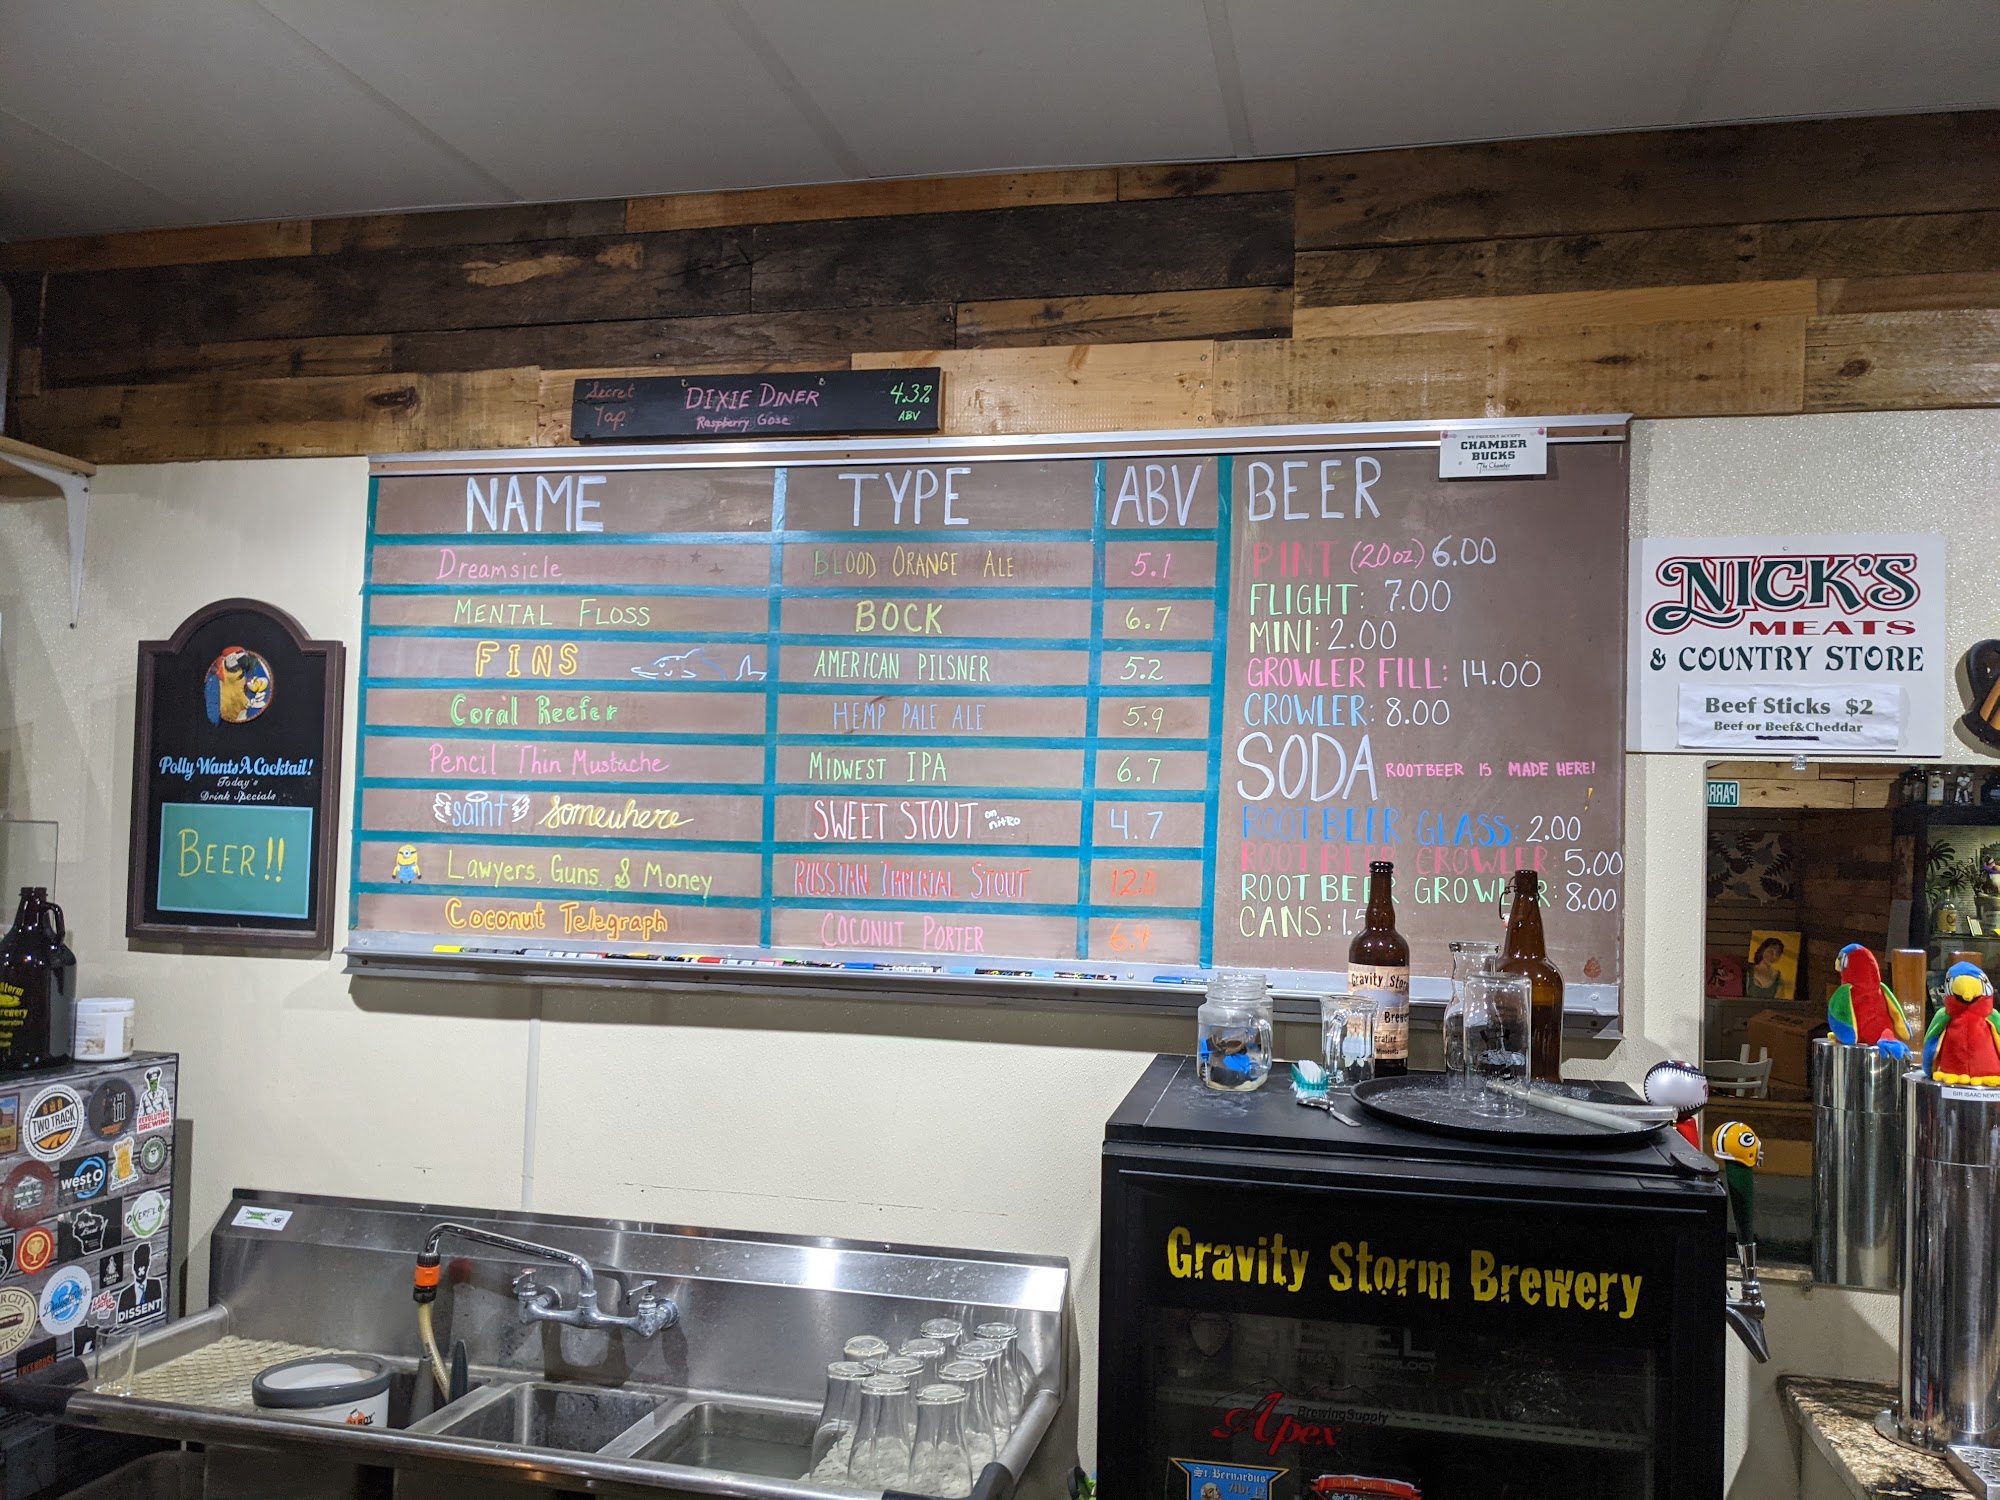 "Secret Tap" "DIXIE DINER" 4.3%
Raspberry Gose ABV
WE PROUDLY ACCEPT
CHAMBER
BUCKS
The Chamber
NAME TYPE ABV
Dreamsicle BLOOD ORANGE ALE 5.1
MENTAL FLOSS BOCK 6.7
FINS AMERICAN PILSNER 5.2
Coral Reefer HEMP PALE ALE 5.9
Pencil Thin Mustache MIDWEST IPA 6.7
saint somewhere SWEET STOUT on nitro 4.7
Lawyers, Guns & Money RUSSIAN IMPERIAL STOUT 12.0
Coconut Telegraph COCONUT PORTER 6.4
BEER
PINT (20oz.) 6.00
FLIGHT: 7.00
MINI: 2.00
GROWLER FILL: 14.00
CROWLER: 8.00
SODA ROOTBEER IS MADE HERE!
ROOT BEER GLASS: 2.00
ROOT BEER CROWLER: 5.00
ROOT BEER GROWLER: 8.00
CANS: 1.5
NICK'S
MEATS
& COUNTRY STORE
Beef Sticks $2
Beef or Beef&Cheddar
Polly Wants A Cocktail!
Today's
Drink Specials
BEER!!
PARR
Storm
Brewery
Gravity Stor
Brewe
TWO TRACK
REVOLUTION
BREWING
westO
OVERFLOW
Drink Local
DISSENT
Gravity Storm Brewery
Apex
Brewing Supply
St. Bernardus
Abt 12
SIR ISAAC NEWTO